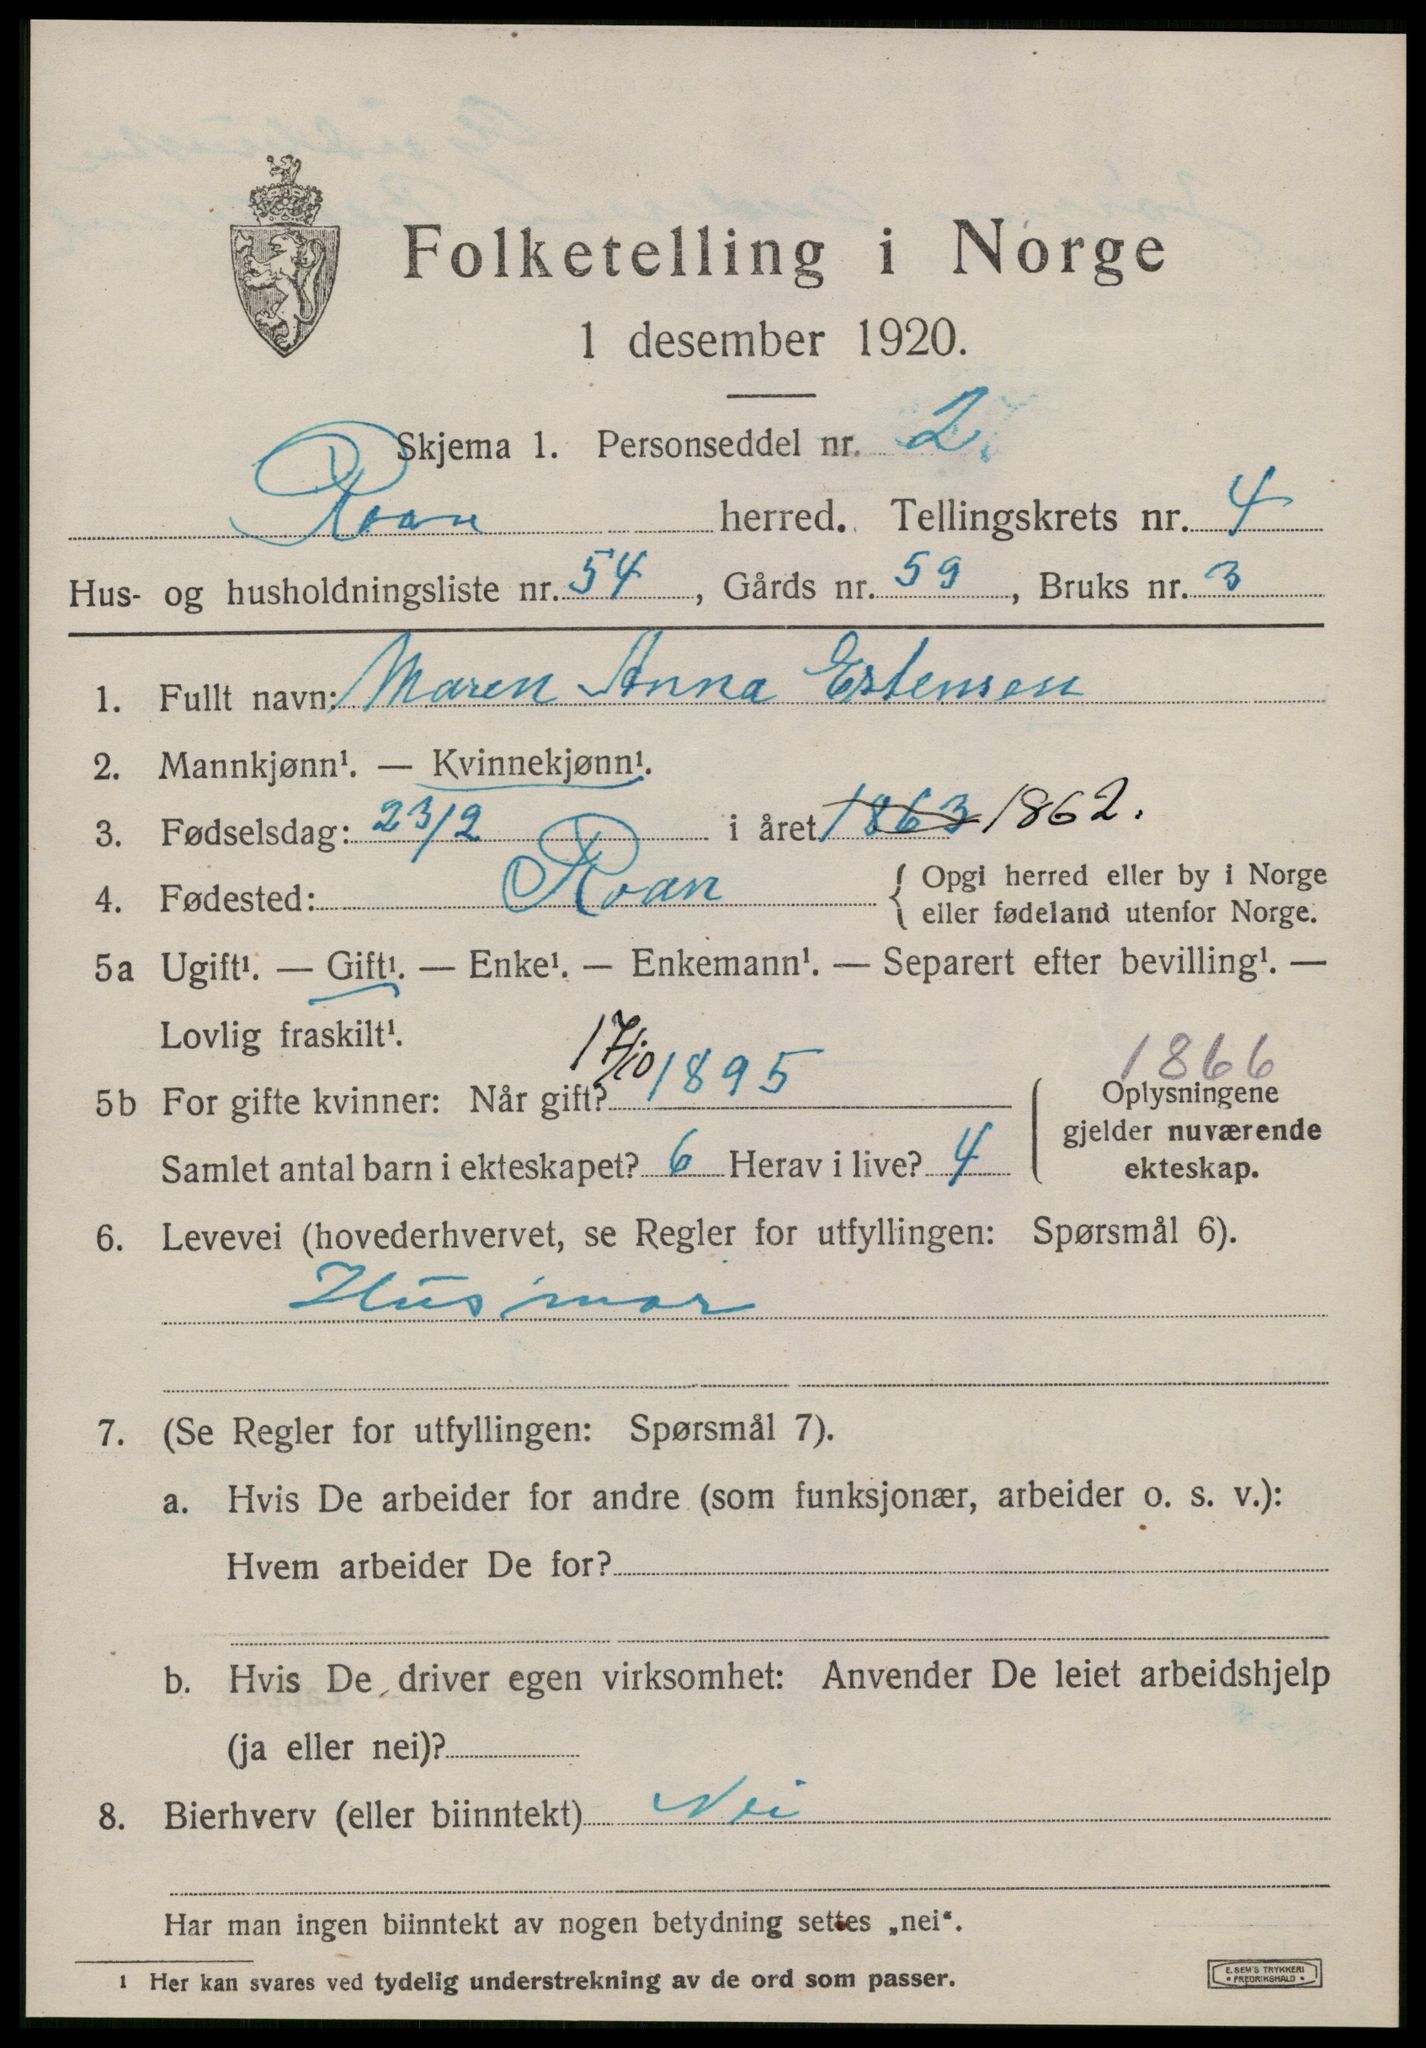 Folketelling i Norge
1 desember 1920.
Skjema 1. Personseddel nr. 2.
Roan herred. Tellingskrets nr. 4
Hus- og husholdningsliste nr. 54, Gårds nr. 59, Bruks nr. 3
1. Fullt navn: Maren Anna Estensen
2. Mannkjønn¹. — Kvinnekjønn¹.
3. Fødselsdag: 23/2 i året 1863 1862.
4. Fødested: Roan { Opgi herred eller by i Norge
eller fødeland utenfor Norge.
5a Ugift¹. — Gift¹. — Enke¹. — Enkemann¹. — Separert efter bevilling¹. —
Lovlig fraskilt¹.
1866
5b For gifte kvinner: Når gift? 17/10 1895
Samlet antal barn i ekteskapet? 6 Herav i live? 4
Oplysningene
gjelder nuværende
ekteskap.
6. Levevei (hovederhvervet, se Regler for utfyllingen: Spørsmål 6).
Husmor
7. (Se Regler for utfyllingen: Spørsmål 7).
a. Hvis De arbeider for andre (som funksjonær, arbeider o. s. v.):
Hvem arbeider De for?
b. Hvis De driver egen virksomhet: Anvender De leiet arbeidshjelp
(ja eller nei)?
8. Bierhverv (eller biinntekt) Nei
Har man ingen biinntekt av nogen betydning settes „nei“.
1 Her kan svares ved tydelig understrekning av de ord som passer.
E. SEM'S TRYKKERI
• FREDRIKSHALD •